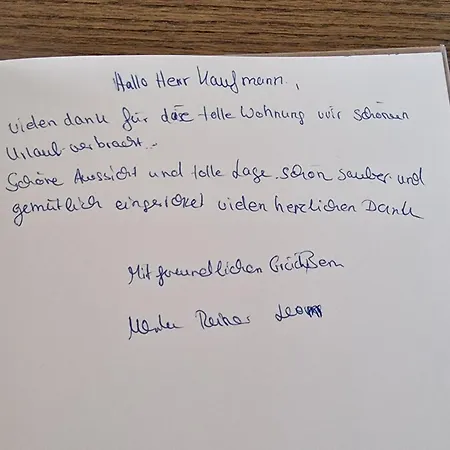 Hallo Herr Kaufmann,
vielen dank für die tolle Wohnung wir schönen
Urlaub verbracht.
Schöne Aussicht und tolle Lage. schön sauber und
gemütlich eingerichtet vielen herzlichen Dank
Mit freundlichen Grüßen
Reiner